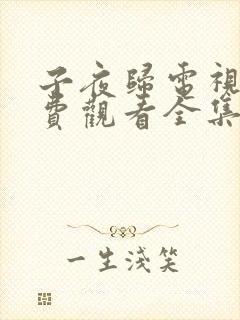 子夜歸電視
費觀看全集
一生淺笑